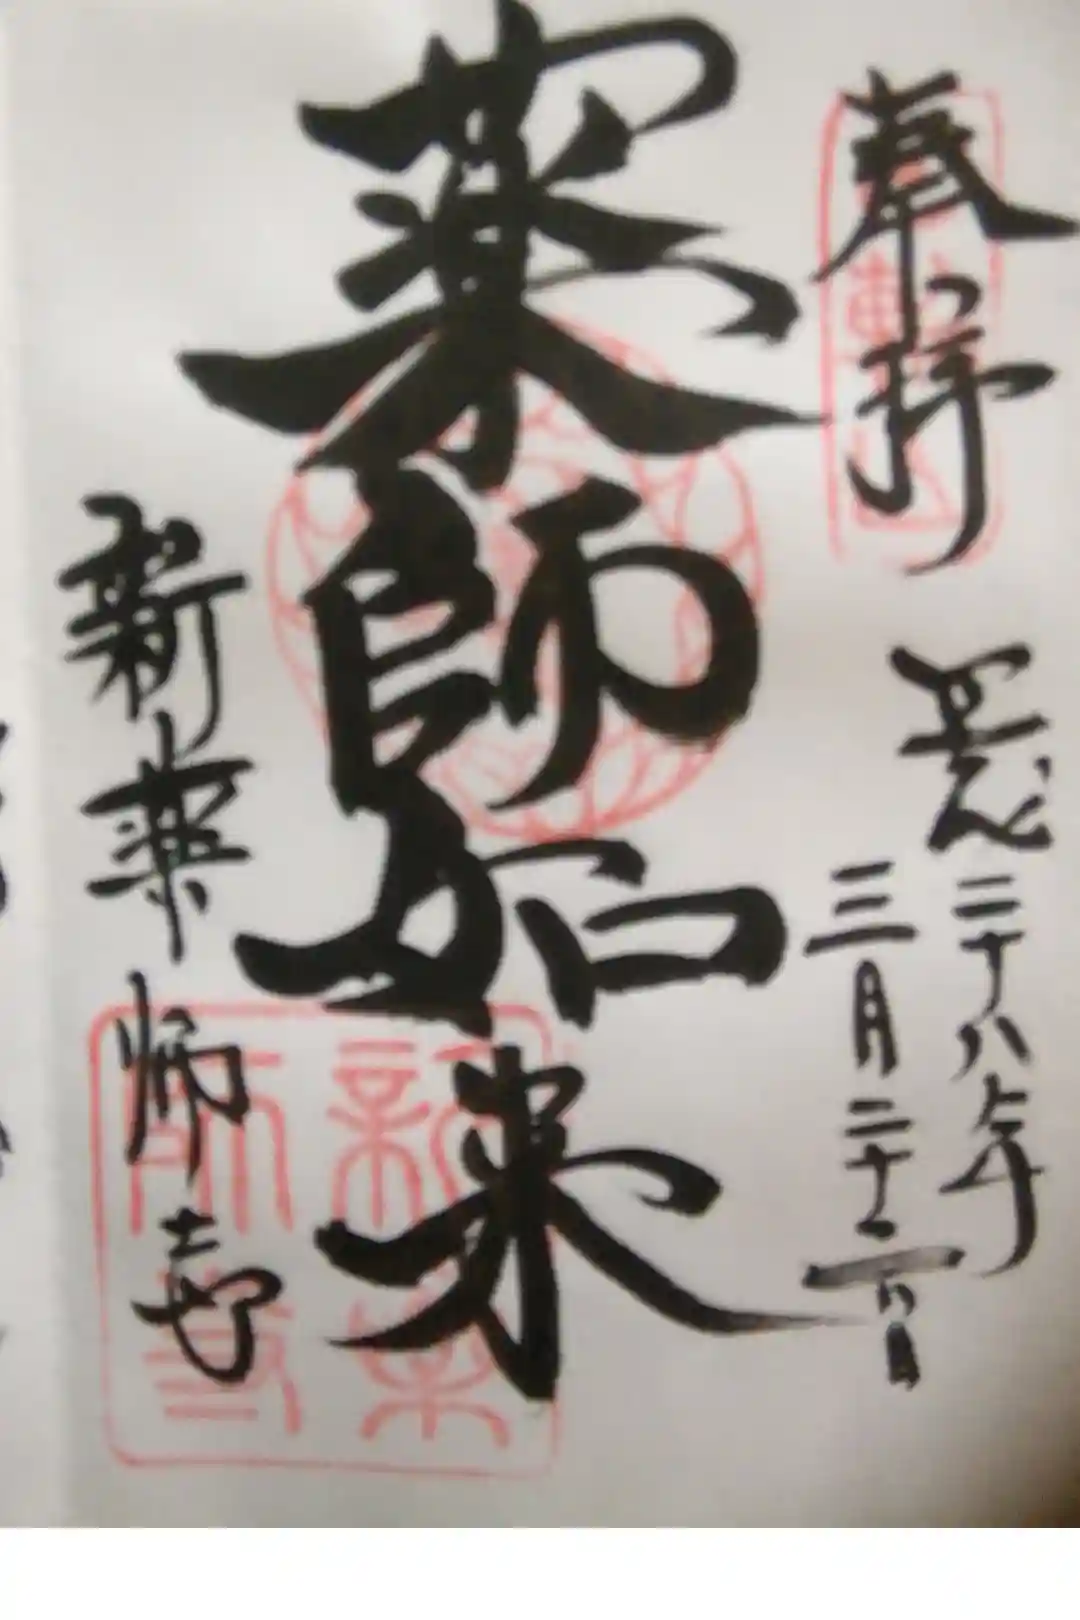 奉拝
平成二十八年
三月二十六日
薬師如来
新薬師寺
新薬師寺